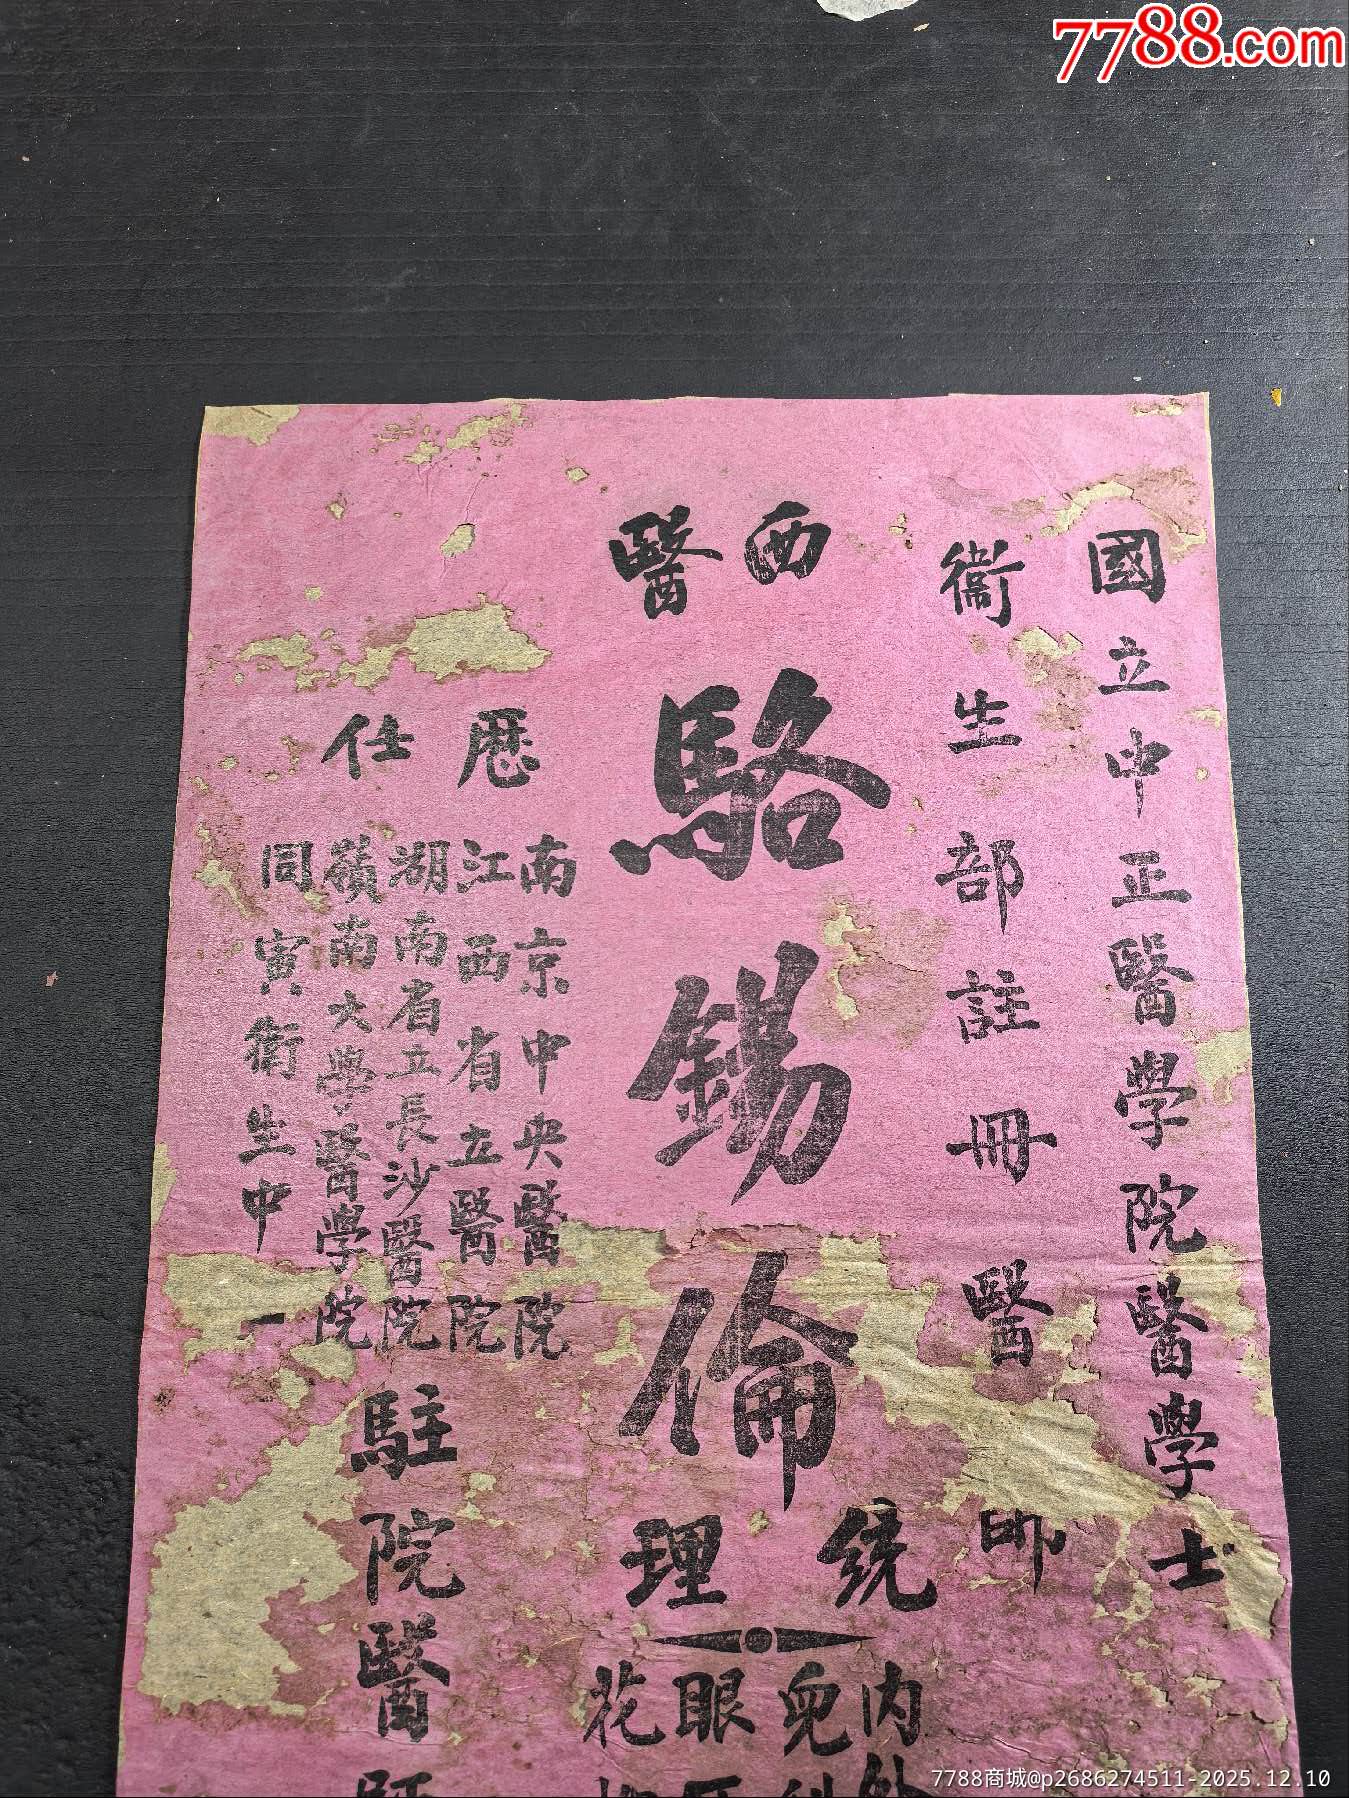 7788.com
國立中正醫學院醫學士
衞生部註冊醫師
西醫
駱錫倫
統理
內兒眼花
歷仕
南京中央醫院
江西省立醫院
湖南省立長沙醫院
嶺南大學醫學院
同寅衛生中
駐院醫師
7788商城@p2686274511-2025.12.10